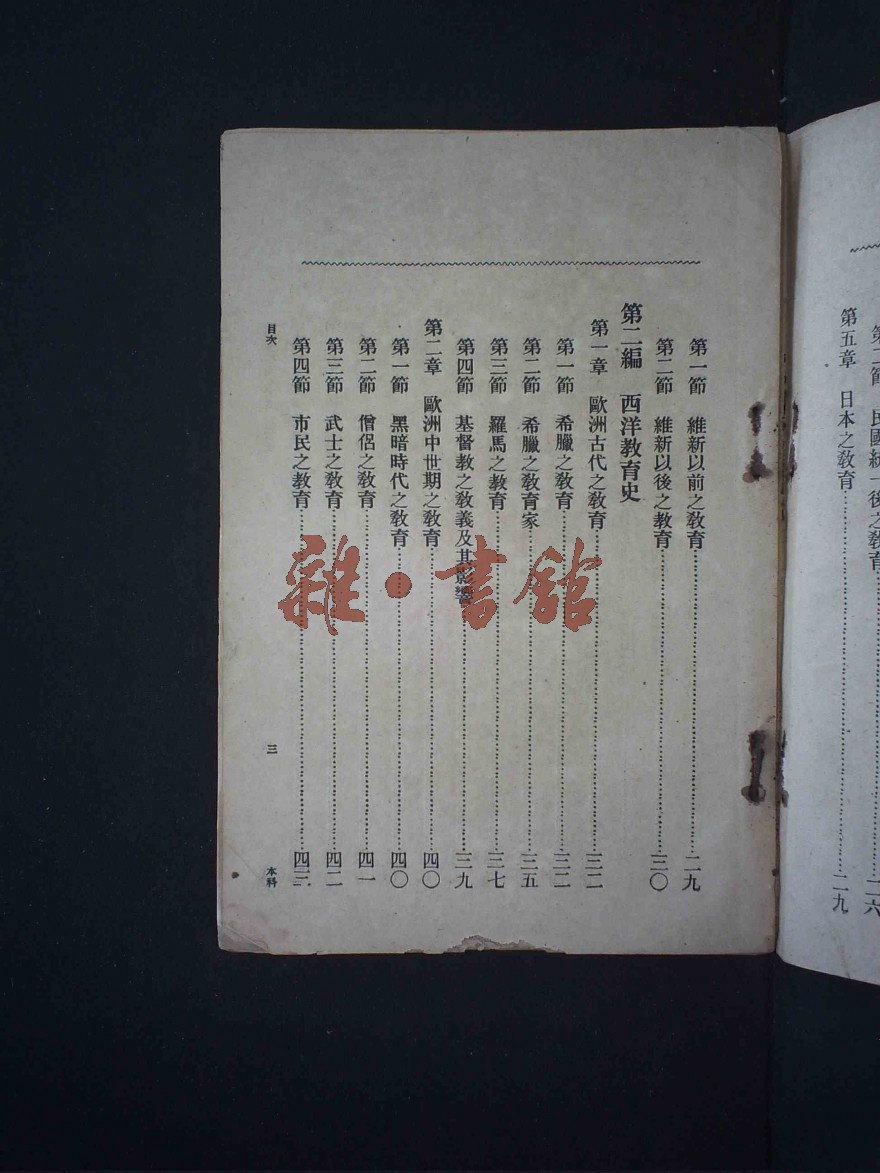 第二節 民國統一後之敎育……二六
第五章 日本之敎育……二九
第一節 維新以前之敎育……二九
第二節 維新以後之敎育……三〇
第二編 西洋敎育史
第一章 歐洲古代之敎育……三二
第一節 希臘之敎育……三二
第二節 希臘之敎育家……三五
第三節 羅馬之敎育……三七
第四節 基督敎之敎義及其影響……三九
第二章 歐洲中世期之敎育……四〇
第一節 黑暗時代之敎育……四〇
第二節 僧侶之敎育……四一
第三節 武士之敎育……四二
第四節 市民之敎育……四三
目次 三 本科
雜·書館